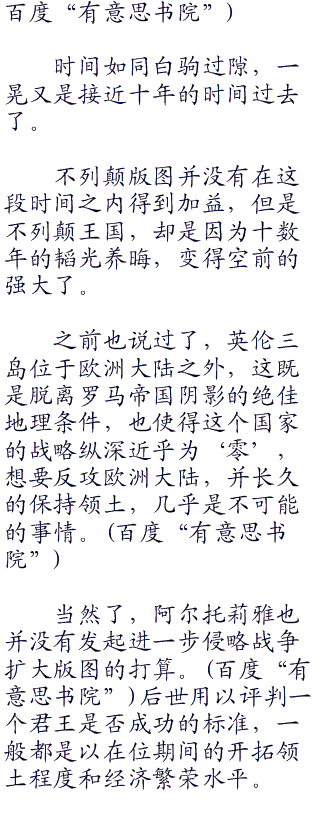 百度“有意思书院”)
时间如同白驹过隙，一
晃又是接近十年的时间过去
了。
不列颠版图并没有在这
段时间之内得到加益，但是
不列颠王国，却是因为十数
年的韬光养晦，变得空前的
强大了。
之前也说过了，英伦三
岛位于欧洲大陆之外，这既
是脱离罗马帝国阴影的绝佳
地理条件，也使得这个国家
的战略纵深近乎为‘零’，
想要反攻欧洲大陆，并长久
的保持领土，几乎是不可能
的事情。(百度“有意思书
院”)
当然了，阿尔托莉雅也
并没有发起进一步侵略战争
扩大版图的打算。(百度“有
意思书院”)后世用以评判一
个君王是否成功的标准，一
般都是以在位期间的开拓领
土程度和经济繁荣水平。